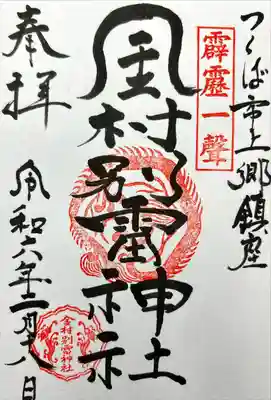 つくば市上郷鎮座
霹靂一聲
金村別雷神社
奉拝
令和六年二月十八日
金村別雷神社